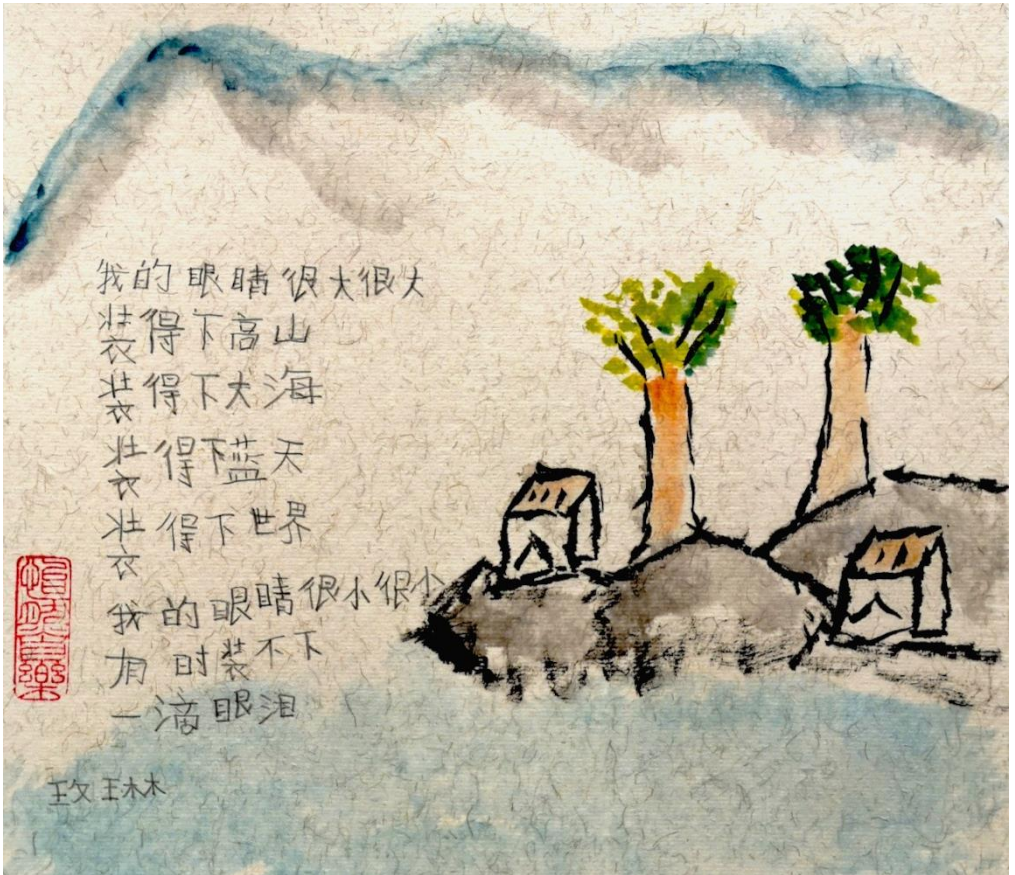 我的眼睛很大很大
装得下高山
装得下大海
装得下蓝天
装得下世界
我的眼睛很小很小
有时装不下
一滴眼泪
玟琳